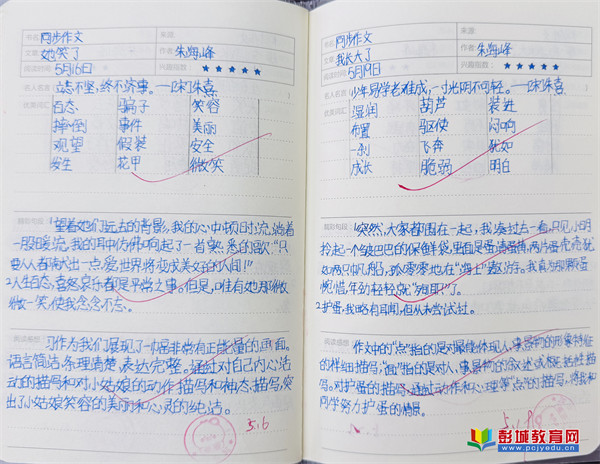 书名 同步作文
来源
文章 她笑了
作者 朱海峰
阅读时间 5月16日
兴趣指数 ★★★★★
名人名言 立志不坚,终不济事。——[宋]朱熹
优美词汇
百态 骗子 笑容
摔倒 事件 美丽
观望 假装 安全
发生 花甲 微笑
精彩句段 1望着她们远去的背影,我的心中顿时流淌着
一股暖流,我的耳中仿佛响起了一首熟悉的歌:“只
要人人都献出一点爱,世界将变成美好的人间!”
2人生百态,喜怒哀乐都是平常之事。但是,唯有她那微
微一笑,使我念念不忘。
阅读感想 习作为我们展现了一幅非常有正能量的画面。
语言简洁,条理清楚,表达完整。通过对自己内心活
动的描写和对小姑娘的动作描写和神态描写,突
出了小姑娘笑容的美丽和心灵的纯洁。
5.16
书名 同步作文
来源
文章 我长大了
作者 朱海峰
阅读时间 5月19日
兴趣指数 ★★★★★
名人名言 少年易学老难成,一寸光阴不可轻。——[宋]朱熹
优美词汇
湿润 葫芦 装进
布置 驱使 闷响
一刹 飞奔 犹如
成长 脆弱 明白
精彩句段 1突然,大家都围在一起,我凑过去一看,只见小明
拎起一个皱巴巴的保鲜袋,里面是蛋清蛋黄,两片蛋壳就犹
如两只帆船,孤零零地在“海上”遨游。我真为那颗蛋
惋惜,年幼轻轻就“殉职”了。
2护蛋,我略有耳闻,但从未尝试过。
阅读感想 作文中的“点”指的是对最能体现人、事、景、物的形象特征
的详细描写,“面”指的是对人、事、景、物的叙述或概括性描
写。对护蛋的描写,通过动作和心理等“点”的描写,将我和
同学努力护蛋的情景。
5.19
彭城教育网
www.pcjyedu.cn